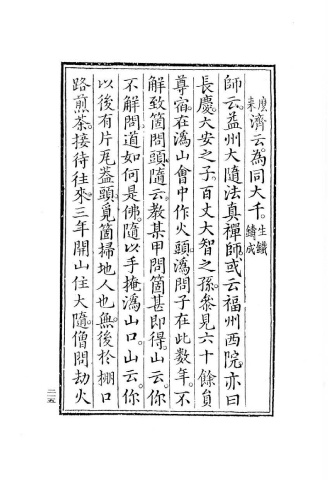 濟云。為同大千。生鐵鑄成
師云。益州大隨法真禪師。或云福州西院。亦曰
長慶大安之子。百丈大智之孫。叅見六十餘員
尊宿。在溈山會中作火頭。溈問子在此數年。不
解致箇問頭。隨云。教某甲問箇甚即得。山云。你
不解問道如何是佛。隨以手掩溈山口。山云。你
以後有片瓦蓋頭。覓箇掃地人也無。後於棚口
路煎茶。接待往來。三年開山住大隨。僧問劫火
二一五